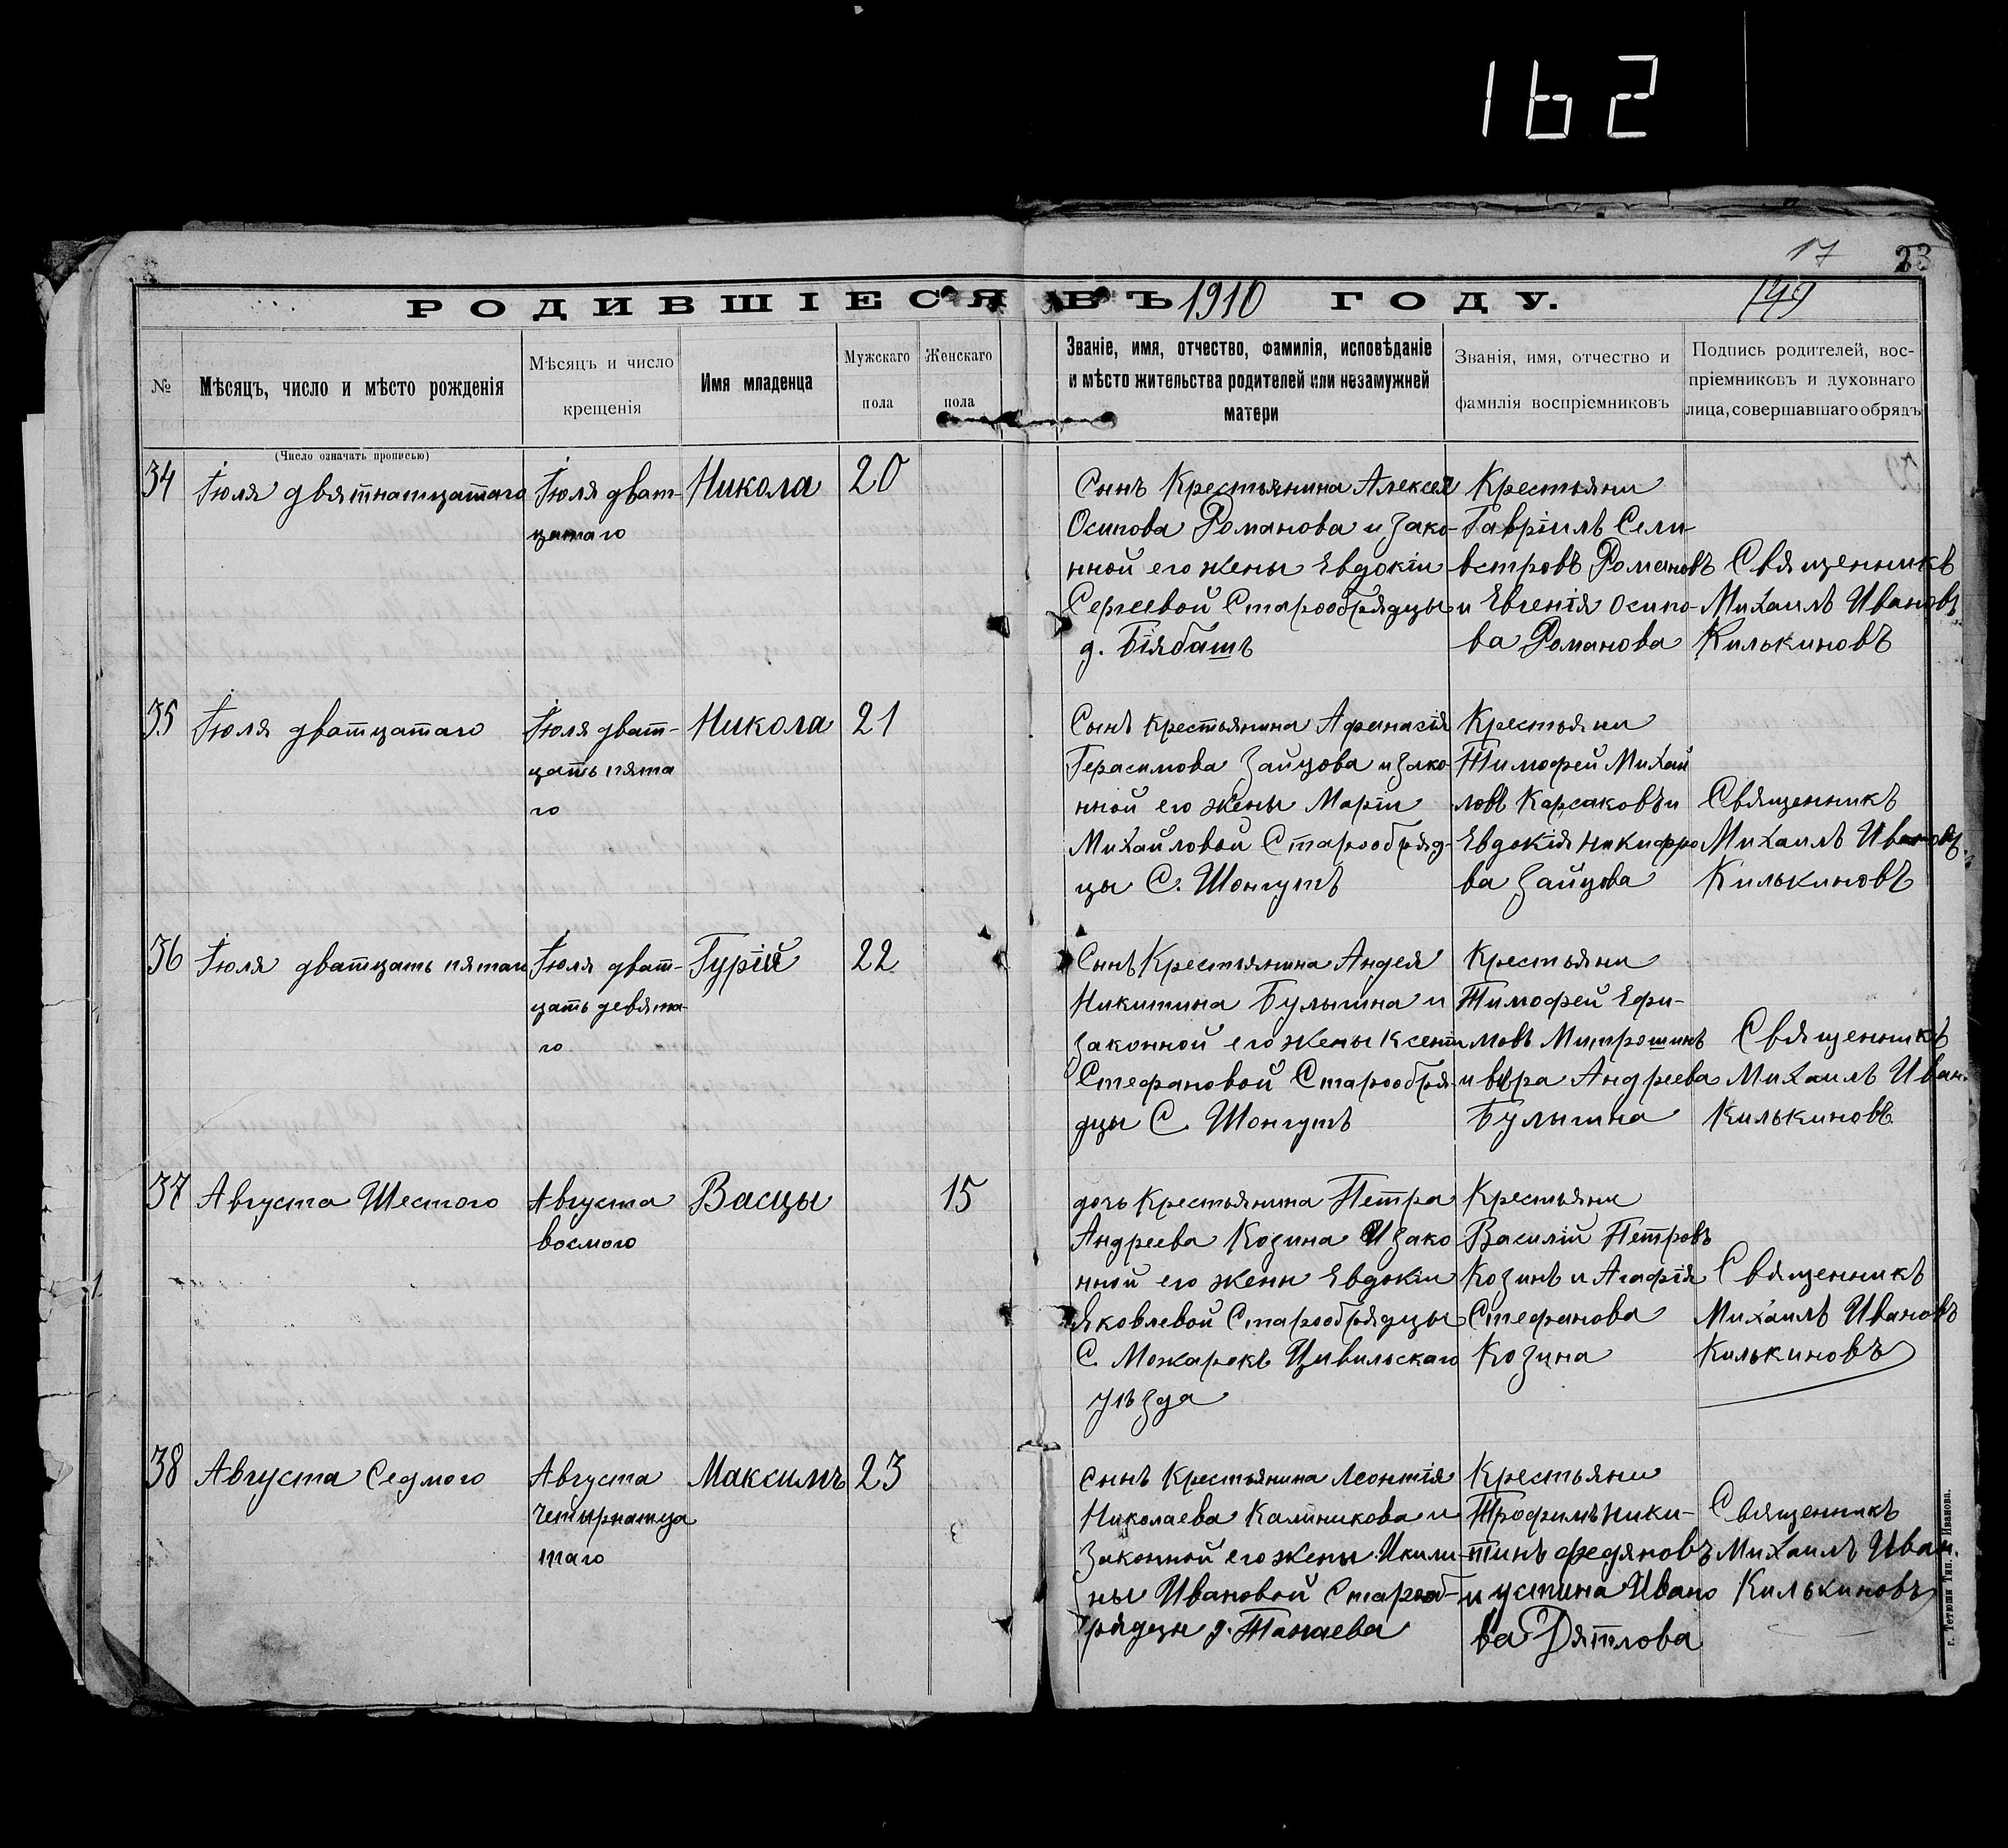 162
17
23
РОДИВШІЕСЯ ВЪ 1910 ГОДУ.
149
№
Мѣсяцъ, число и мѣсто рожденія
Мѣсяцъ и число
крещенія
Имя младенца
Мужскаго
пола
Женскаго
пола
Званіе, имя, отчество, фамилія, исповѣданіе
и мѣсто жительства родителей или незамужней
матери
Званія, имя, отчество и
фамилія воспріемниковъ
Подпись родителей, вос-
пріемниковъ и духовнаго
лица, совершавшаго обрядъ
(Число означать прописью)
34
Іюля двятнатцатаго
Іюля дват-
цатаго
Никола
20
Сынъ Крестьянина Алексея
Осипова Романова и зако-
нной его жены Евдокіи
Сергеевой Старообрядцы
д. Біябашъ
Крестьяни
Гавріилъ Сели-
встровъ Романовъ
и Евгенія Осипо-
ва Романова
Священникъ
Михаилъ Ивановъ
Килькиновъ
35
Іюля дватцатаго
Іюля дват-
цать пята
го
Никола
21
Сынъ крестьянина Афанасія
Герасимова Зайцова и зако-
нной его жены Маріи
Михайловой Старообряд-
цы С. Шонгутъ
Крестьяни
Тимофей Михай
ловъ Карсаковъ и
Евдокія Никифро
ва Зайцова
Священникъ
Михаилъ Ивановъ
Килькиновъ
36
Іюля дватцать пятаго
Іюля дват-
цать девята-
го
Гурій
22
Сынъ Крестьянина Андея
Никитина Булыгина и
законной его жены Ксеніи
Стефановой Старообря-
дцы С. Шонгутъ
Крестьяни
Тимофей Ефи-
мовъ Митрошинъ
и вѣра Андреева
Булыгина
Священникъ
Михаилъ Иван.
Килькиновъ
37
Августа Шестого
Августа
восмого
Васцы
15
дочь Крестьянина Петра
Андреева Козина И зако
нной его жени Евдокіи
Яковлевой Старообрядцы
С. Можарокъ Цивильскаго
уѣзда
Крестьяни
Василій Петровъ
Козинъ и Агафія
Стефанова
Козина
Священникъ
Михаилъ Ивановъ
Килькиновъ
38
Августа Седмого
Августа
четырнатца
таго
Максимъ
23
Сынъ Крестьянина Леонтія
Николаева Калиникова и
Законной его жены Икили-
ны Ивановой Старооб-
рядцы д. Танаева
Крестьяни
Трофимъ Ники-
тинъ федяновъ
и устина Ивано
ва Дятлова
Священникъ
Михаилъ Иван.
Килькиновъ
г. Тетюши Тип. Иванова.